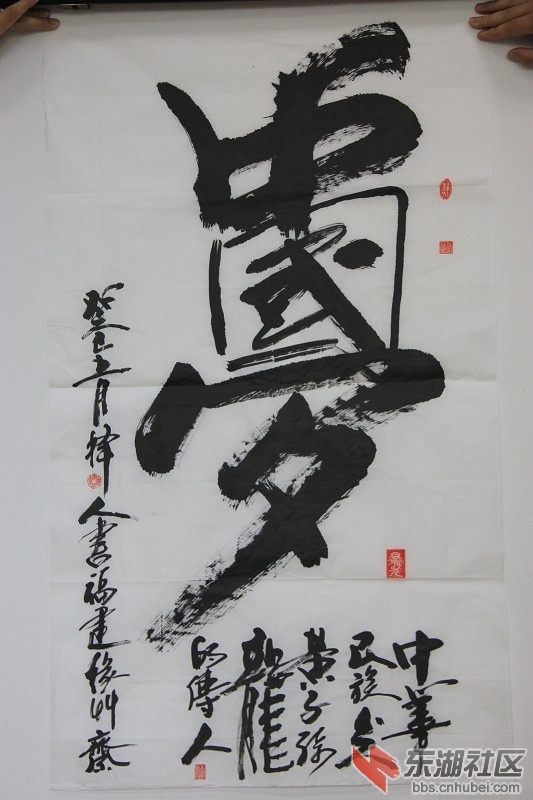 中國夢
中華
民族炎
黄子孫
龍
的傳人
癸巳 月 人書福建 艸齋
东湖社区
bbs.cnhubei.com